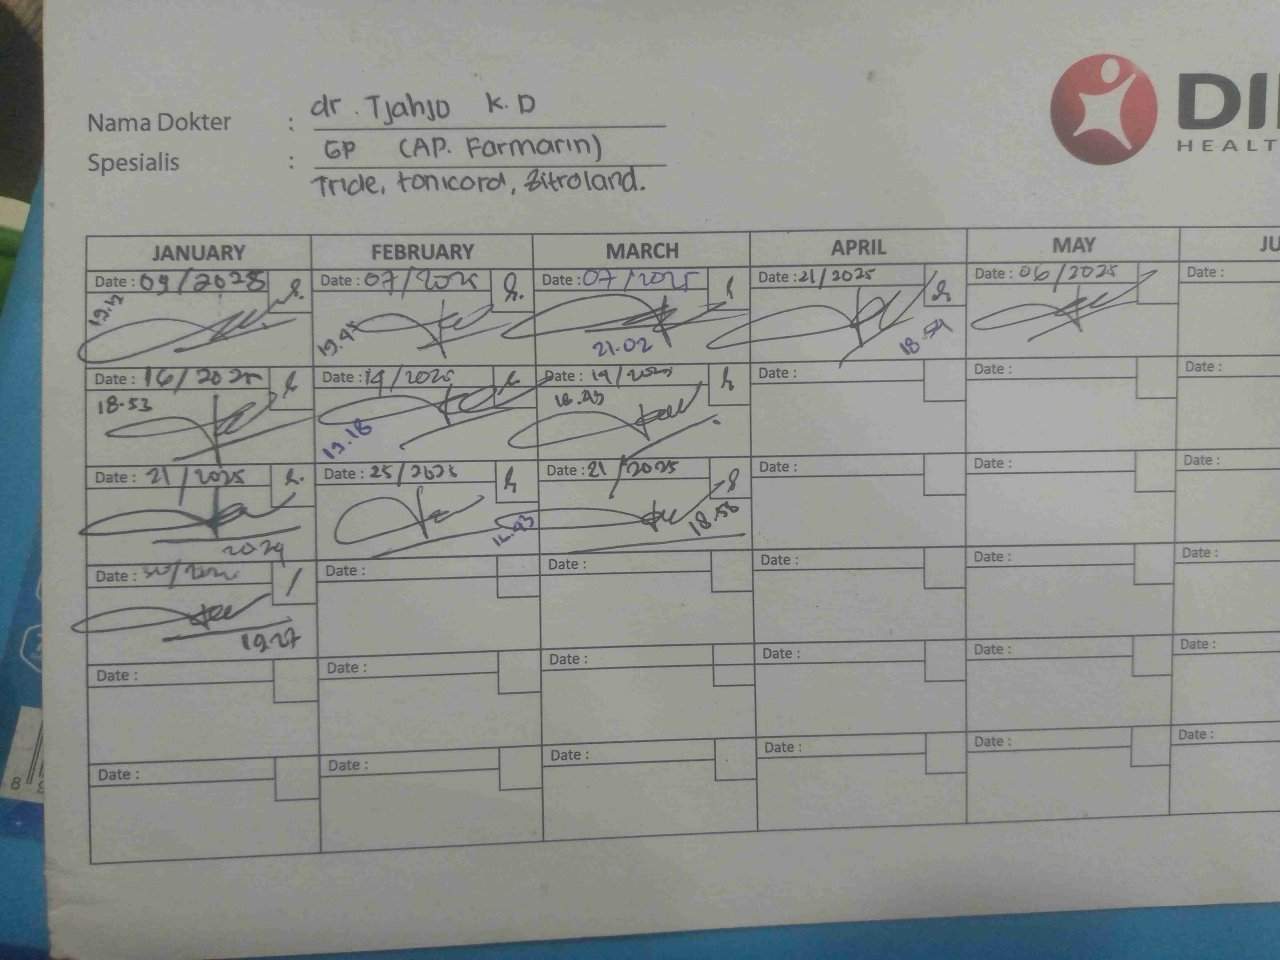 Nama Dokter : dr. Tjahjo K.D
Spesialis : GP (AP. Farmarin)
Tride, tonicord, Zitroland.
DI
HEALT
JANUARY FEBRUARY MARCH APRIL MAY JU
Date : 09/2025 Date : 07/2025 Date : 07/2025 Date : 21/2025 Date : 06/2025 Date :
19.45 21.02 18.59
Date : 16/2025 Date : 19/2025 Date : 19/2025 Date : Date : Date :
18.53 19.18
Date : 21/2025 Date : 25/2025 Date : 21/2025 Date : Date : Date :
2029 18.58
Date : Date : Date : Date : Date : Date :
19.27
Date : Date : Date : Date : Date : Date :
Date : Date : Date : Date : Date : Date :